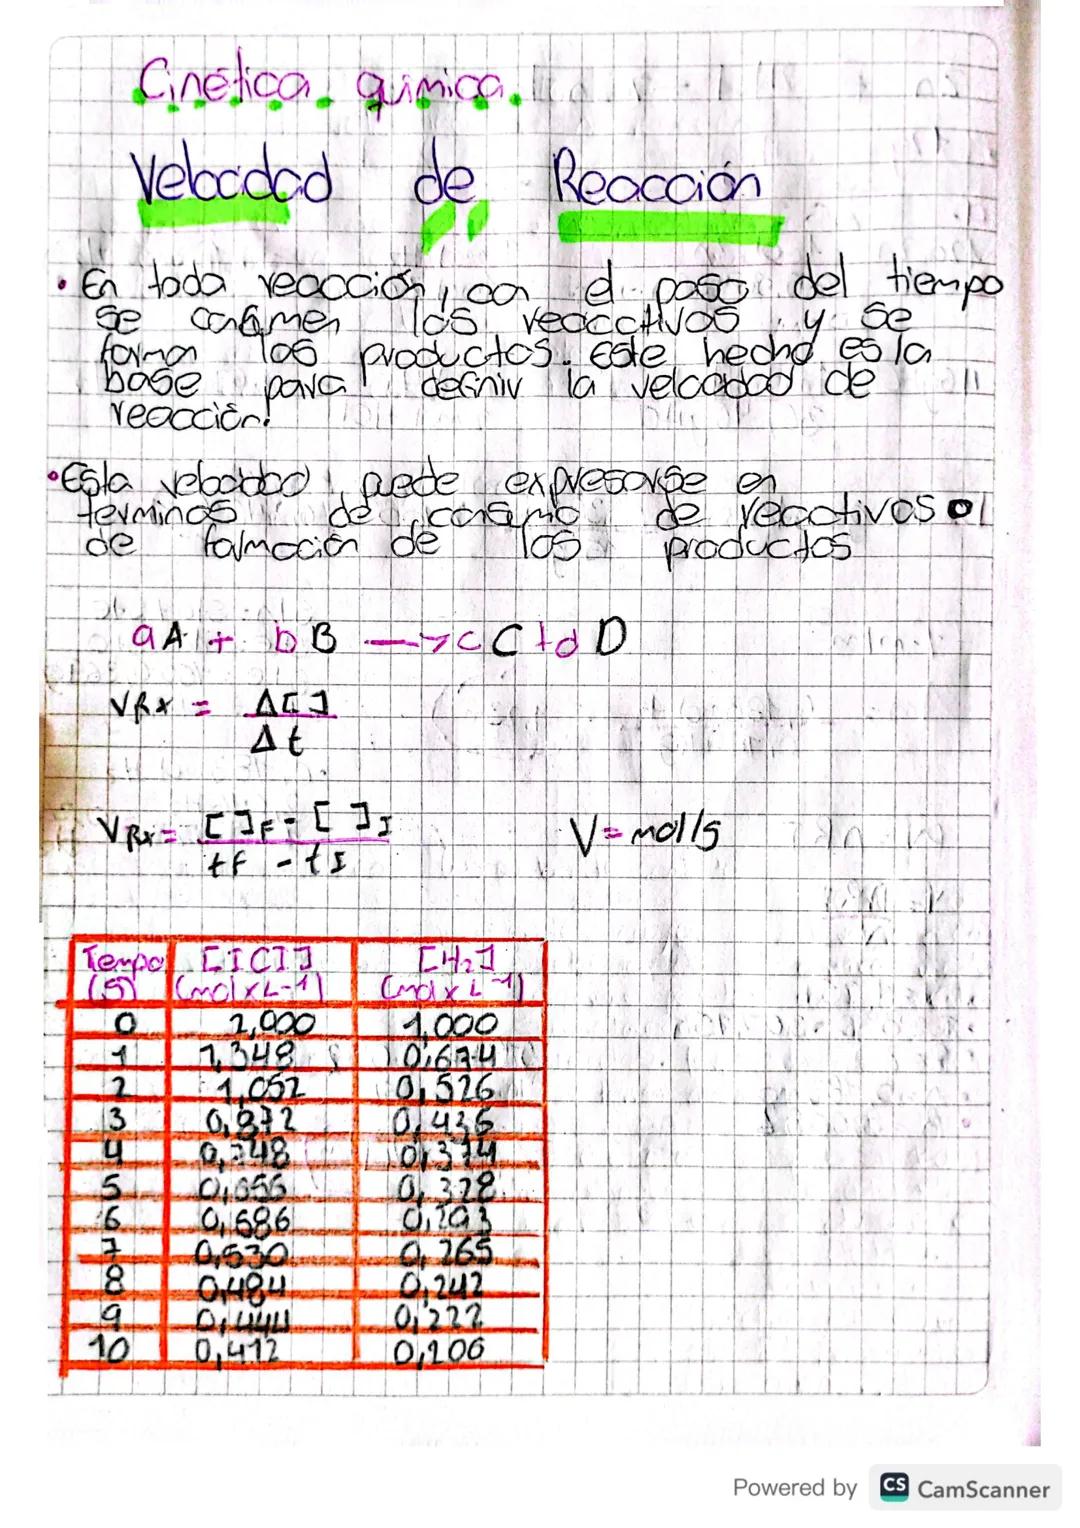 Cinética química.
Velocidad de Reacción
• En toda reacción, con el paso del tiempo
se consumen los reacctivos y se
forman los productos. Este hecho es la
base para definir la velocidad de
reacción.
• Esta velocidad puede expresarse en
terminos de consumo de reactivos o
de formación de los productos
aA + bB → cC + dD
VRx = Δ[ ]
Δt
VRx = [ ]F - [ ]I
tF - tI
V = mol/s
Tempo [ICl] [H₂]
(S) (mol x L-1) (mol x L-1)
0 2,000 1,000
1 1,348 0,674
2 1,052 0,526
3 0,872 0,436
4 0,748 0,374
5 0,656 0,328
6 0,686 0,293
7 0,530 0,265
8 0,484 0,242
9 0,444 0,222
10 0,412 0,206
Powered by CS CamScanner